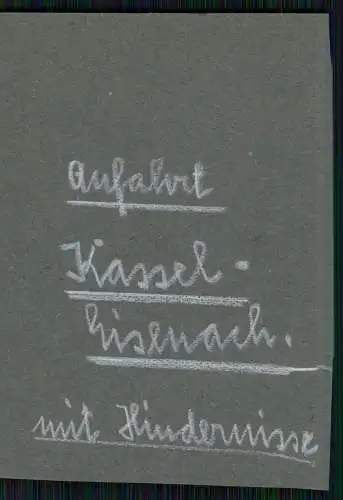 Anfahrt
Kassel-
Eisenach.
mit Hindernisse